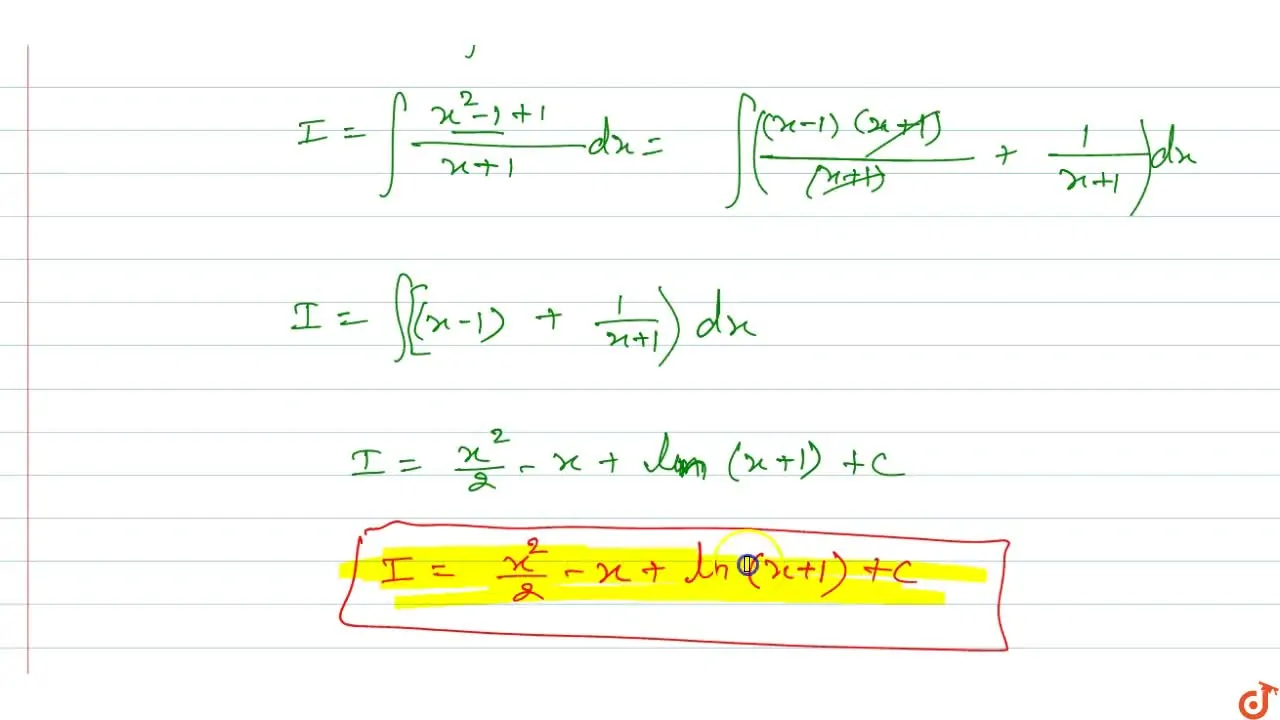 I = ∫ (x² - 1 + 1)/(x + 1) dx = ∫ ( (x-1) (x+1)/(x+1) + 1/(x+1) ) dx
I = ∫ [(x-1) + 1/(x+1)) dx
I = x²/2 - x + ln (x+1) + C
I = x²/2 - x + ln (x+1) + C